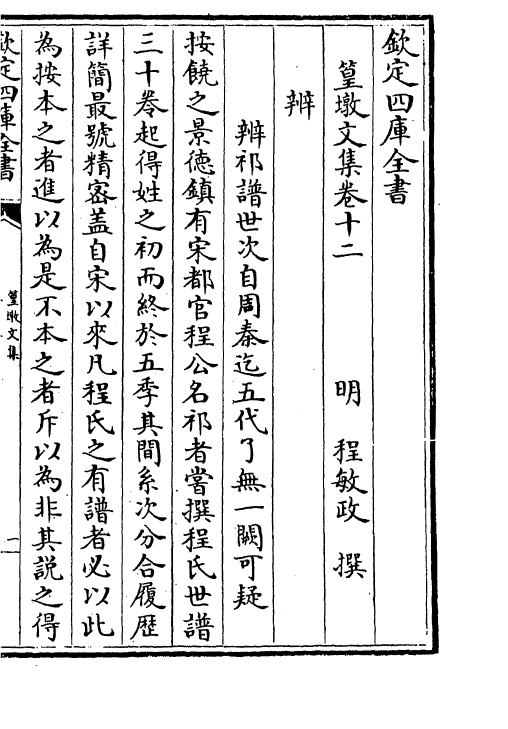 欽定四庫全書
篁墩文集卷十二
明 程敏政 撰
辨
辨祁譜世次自周秦迄五代了無一闕可疑
按饒之景德鎮有宋都官程公名祁者嘗撰程氏世譜
三十卷起得姓之初而終於五季其間系次分合履歴
詳簡最號精密盖自宋以來凡程氏之有譜者必以此
為按本之者進以為是不本之者斥以為非其説之得
欽定四庫全書
篁墩文集
一